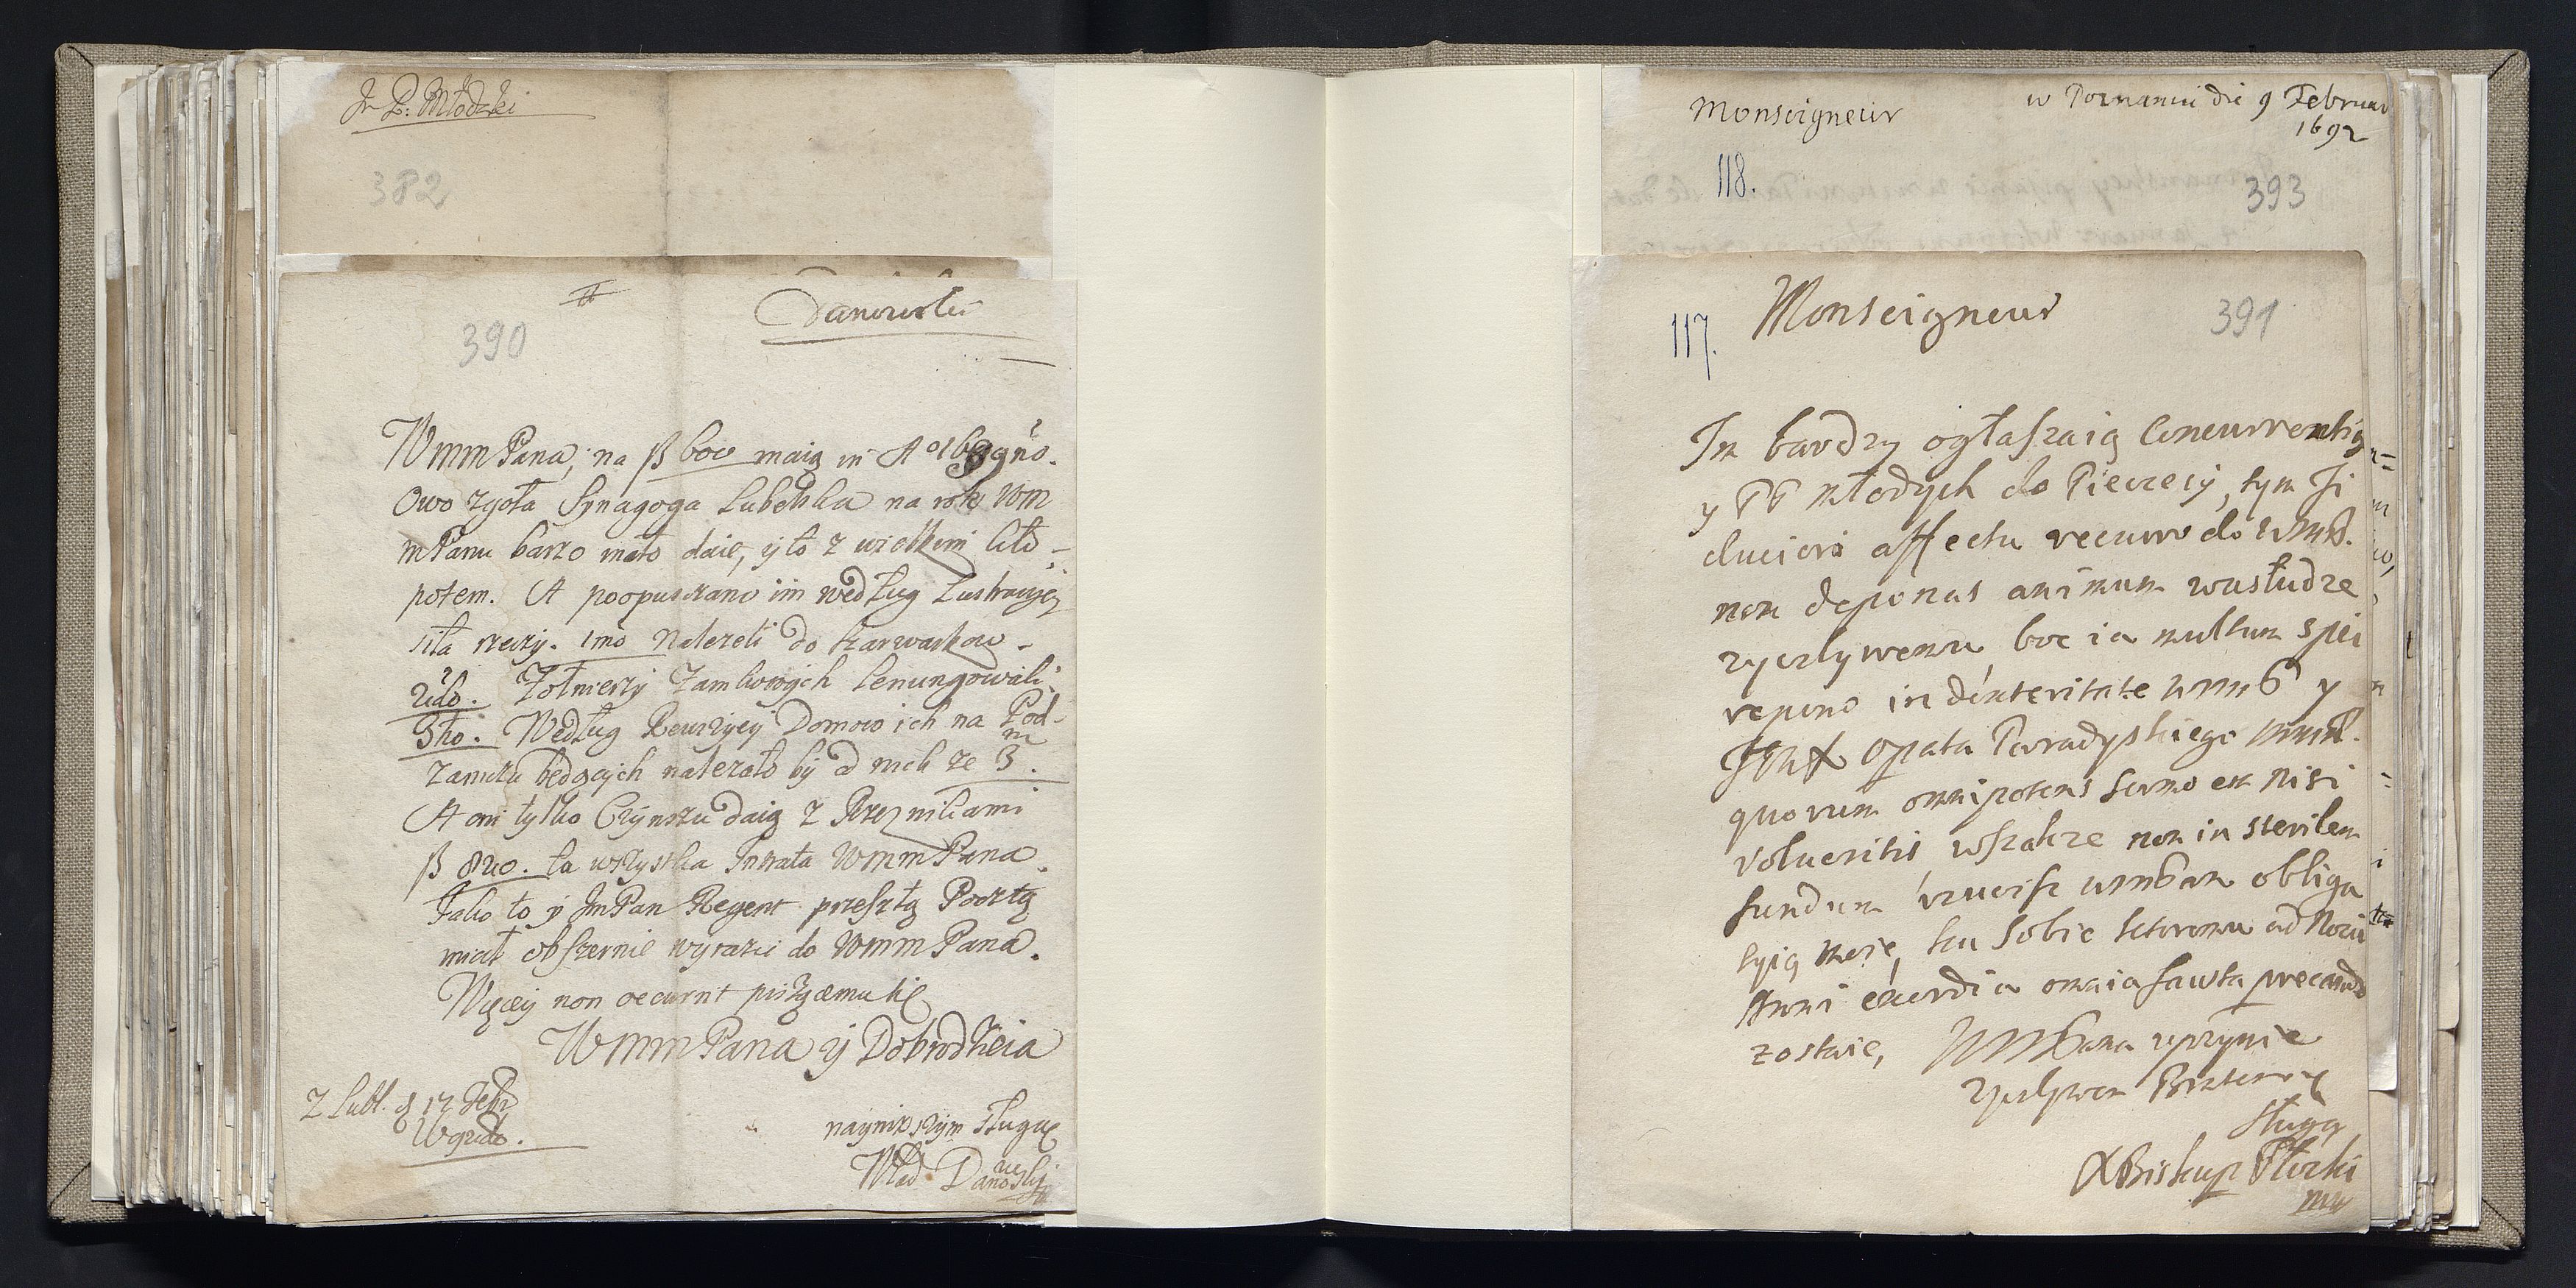 Jn P: Młodzki
382
Danowski
390
WmmPana, na ß 600 maią in Ao
Owo zgoła Synagoga Lubelska na rok Wm
mPanu barzo mało daie, y to z wielkim kło-
potem. A poopuszczano im według Lustracyey
siła rzeczy. 1mo Należeli do szarwarkow.
2do. Żołnierzy Zamkowych lenungowali
3tio. Według Rewizyey Domow ich na Pod-
zamczu będących należało by od nich ze 3 m
A oni tylko Czynszu daią z Rzeznikami
ß 800. ta wszystka Intrata WmmPana.
Jako to y JmPan Regent przeszłą Pocztą
miał obszernie wyrazić do WmmPana.
Więcey non occurrit piszącemu się
WmmPana y Dobrodzieia
Z Lubl. d 17 Febr
nayniższym sługą
Wład Danowsky
Monseigneur
w Poznaniu die 9 Februar
1692
118.
393
117.
Monseigneur
391
Im bardzy ogłaszaią Concurrentią
y PP młodych do Pieczęci, tym fi
duciori affectu recurro do WmP.
non deponas animum wasłudze
życzlywemu boć ia multum spei
repono in dexteritate WmP y
Opata Paradyskiego
quorum omnipotens sermo est nisi
volueritis, wszakże non in sterilem
fundum wrucisz WmPan obliga
tyią moię, tu sobie
Anni exordia omnia fausta precando
zostaie, WmPana uprzymie
życzlywem Bratem y
sługą
XBiskup Płocki
mp